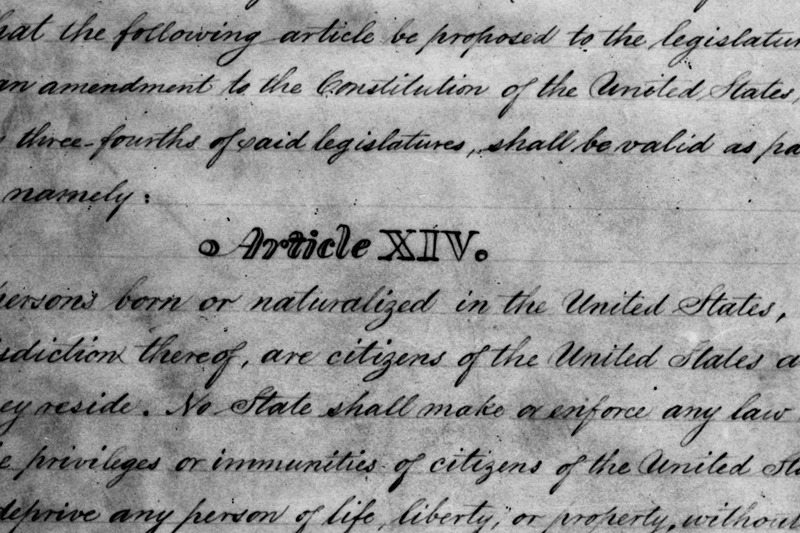 hat the following article be proposed to the legislatur
an amendment to the Constitution of the United States,
three-fourths of said legislatures, shall be valid as pa
namely:
Article XIV.
persons born or naturalized in the United States,
isdiction thereof, are citizens of the United States a
ey reside. No State shall make or enforce any law
e privileges or immunities of citizens of the United Sta
deprive any person of life, liberty, or property, without